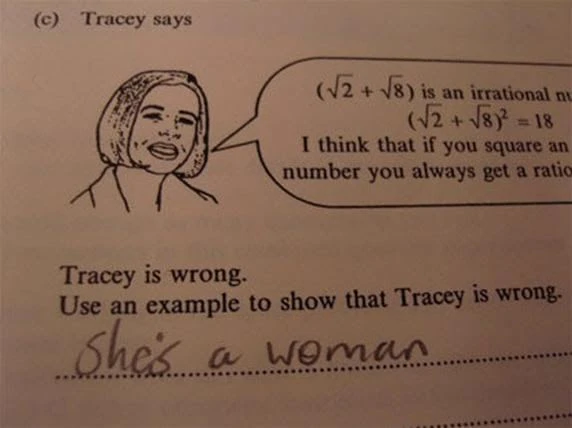 (c) Tracey says
(√2 + √8) is an irrational
(√2 + √8)² = 18
I think that if you square an
number you always get a
Tracey is wrong.
Use an example to show that Tracey is wrong.
She's a woman